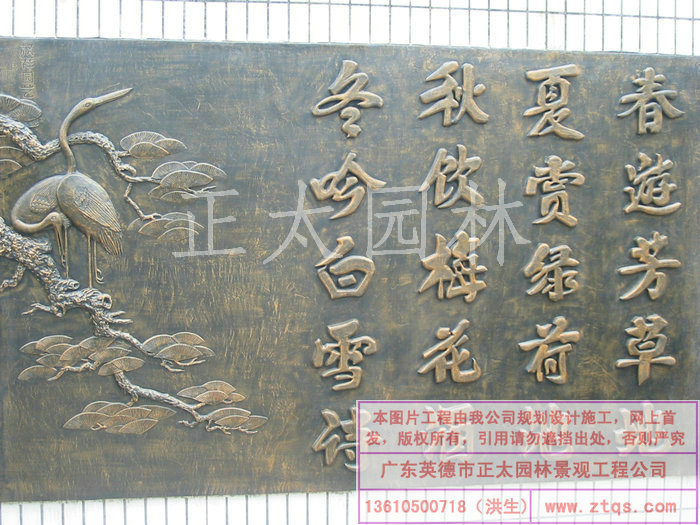 春遊芳草地
夏赏绿荷池
秋饮梅花酒
冬吟白雪诗
正太园林
本图片工程由我公司规划设计施工，网上首
发，版权所有，引用请勿遮挡出处，否则严究
广东英德市正太园林景观工程公司
13610500718（洪生）
www.ztqs.com